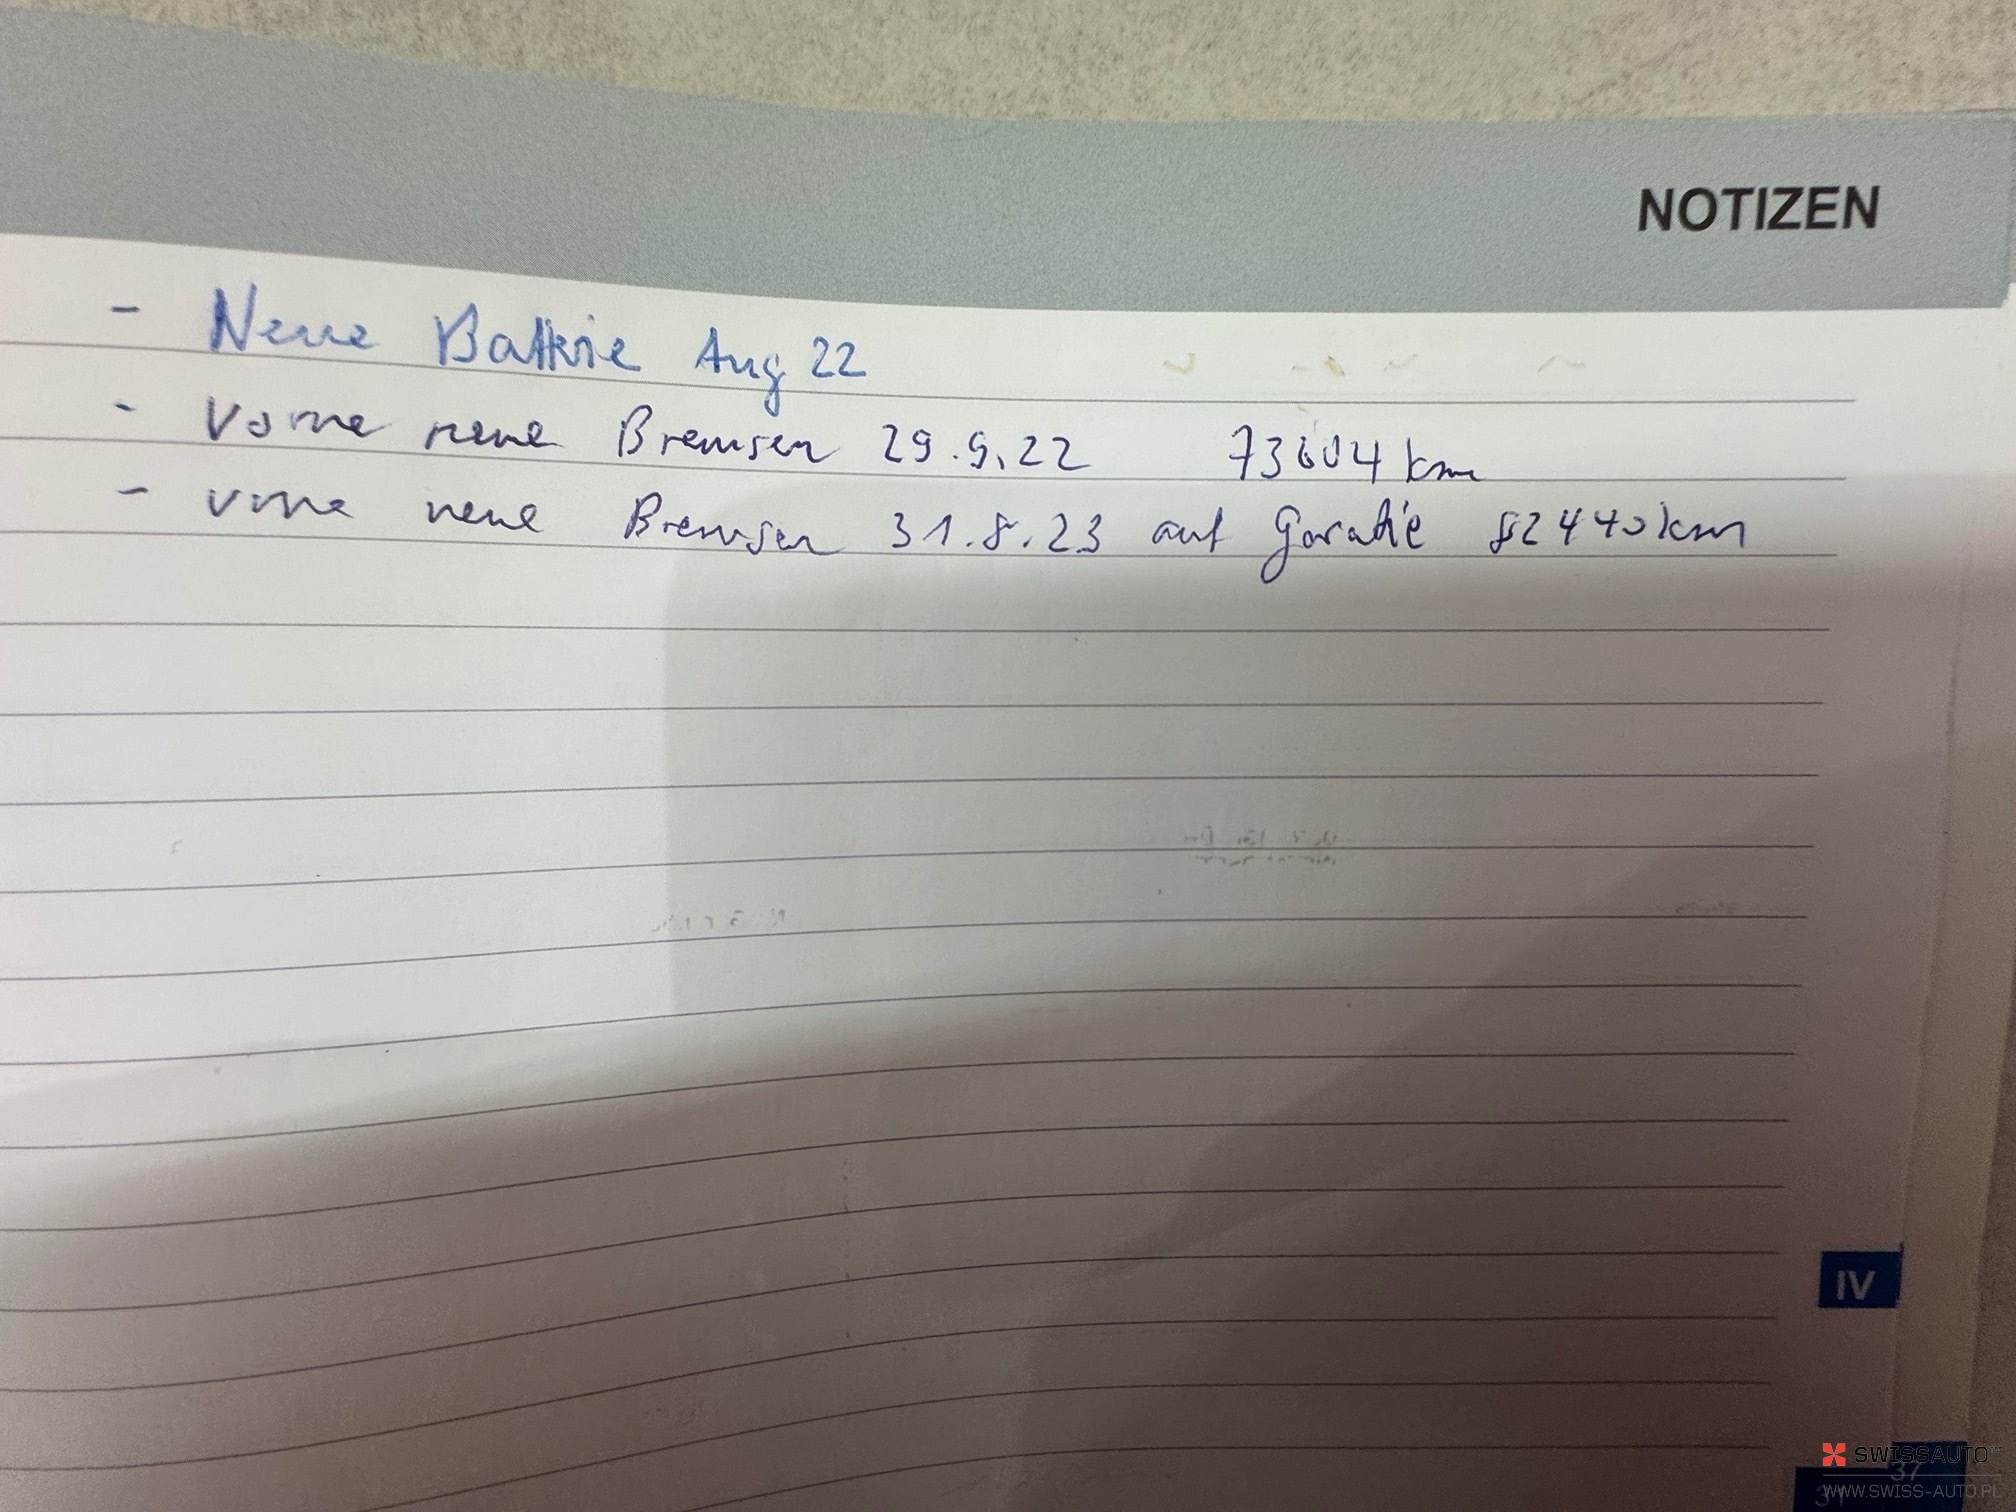 NOTIZEN
- Neue Batterie Aug 22
- Vorne neue Bremsen 29.9.22 73604 km
- vorne neue Bremsen 31.8.23 auf Garatie 82440 km
IV
37
SWISSAUTO
WWW.SWISS-AUTO.PL